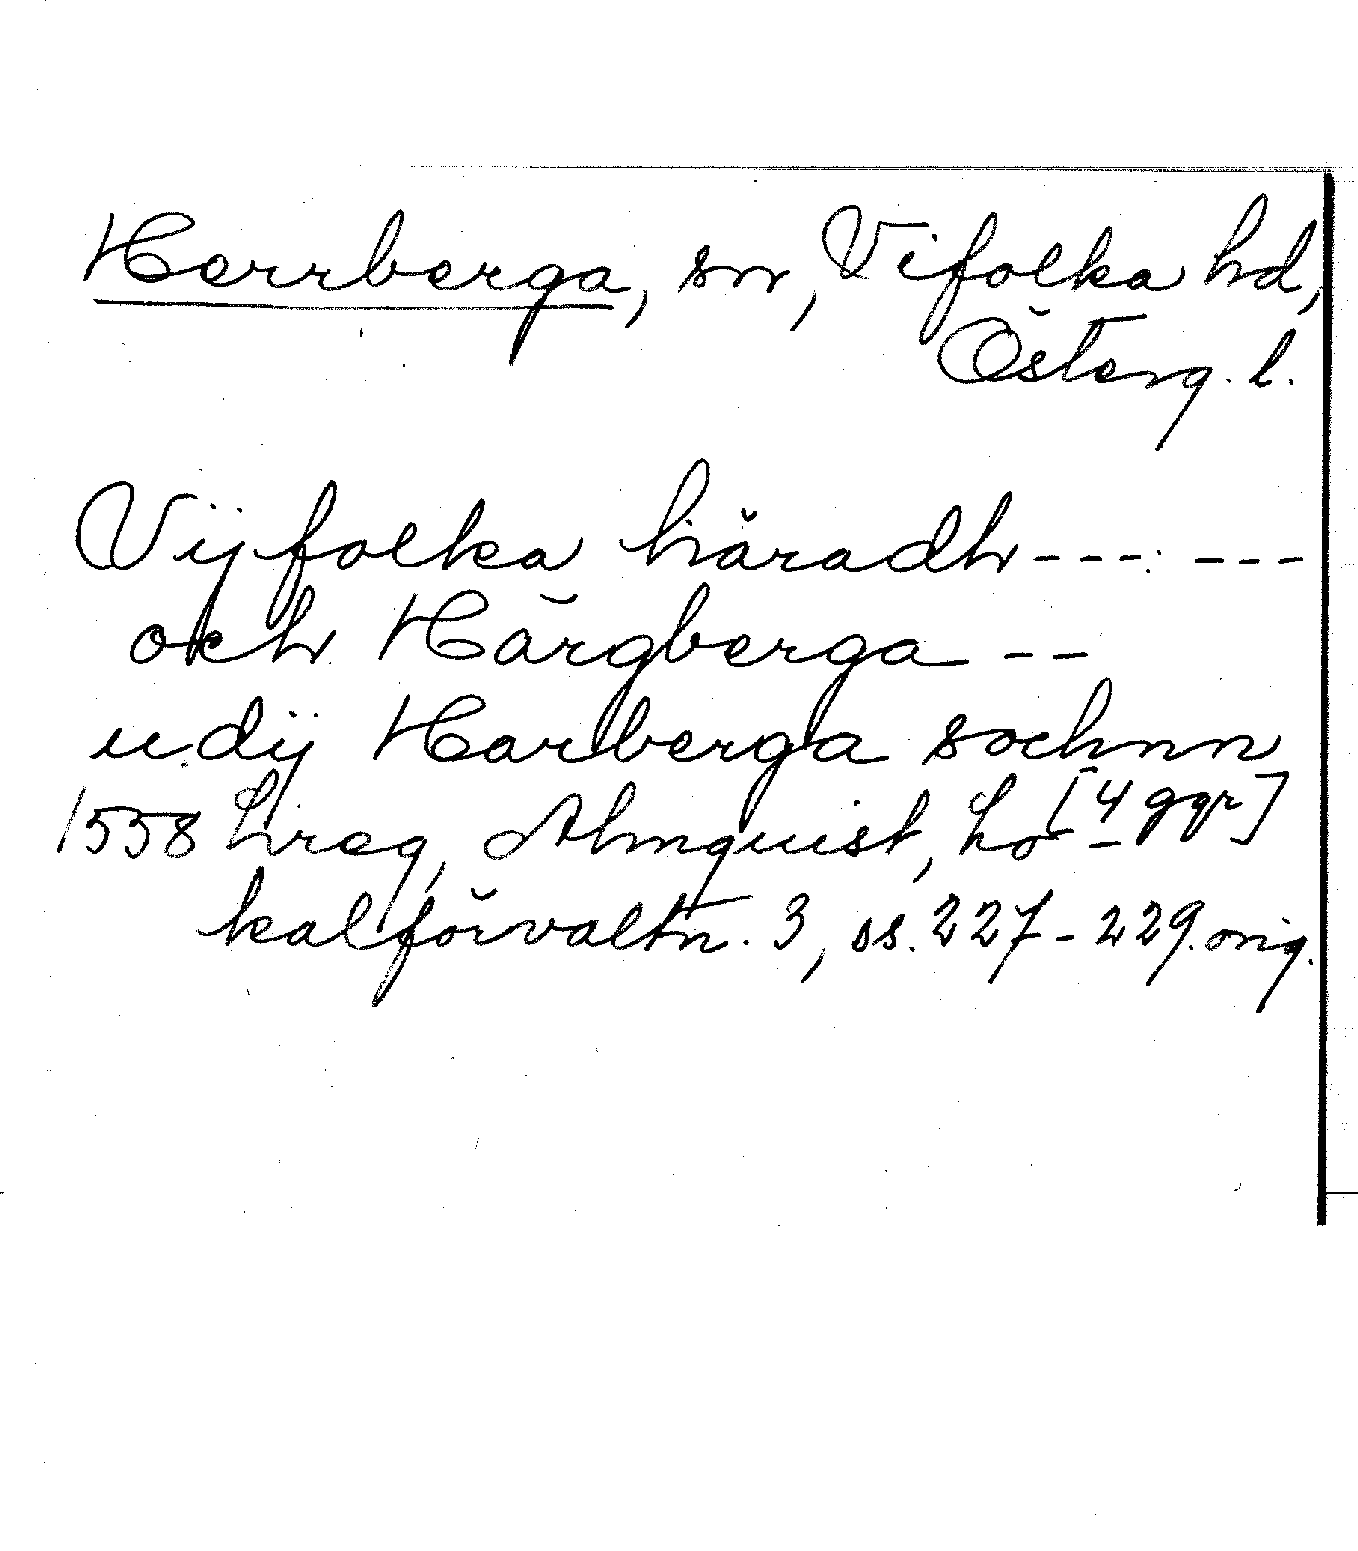 Herrberga, sn, Vifolka hd,
Österg. l.
Vijfolka häradh --- ---
och Härgberga --
udij Harberga sochnn
[4 ggr]
1558 hreg, Almquist, Lo-
kalförvaltn. 3, ss. 227-229. orig.